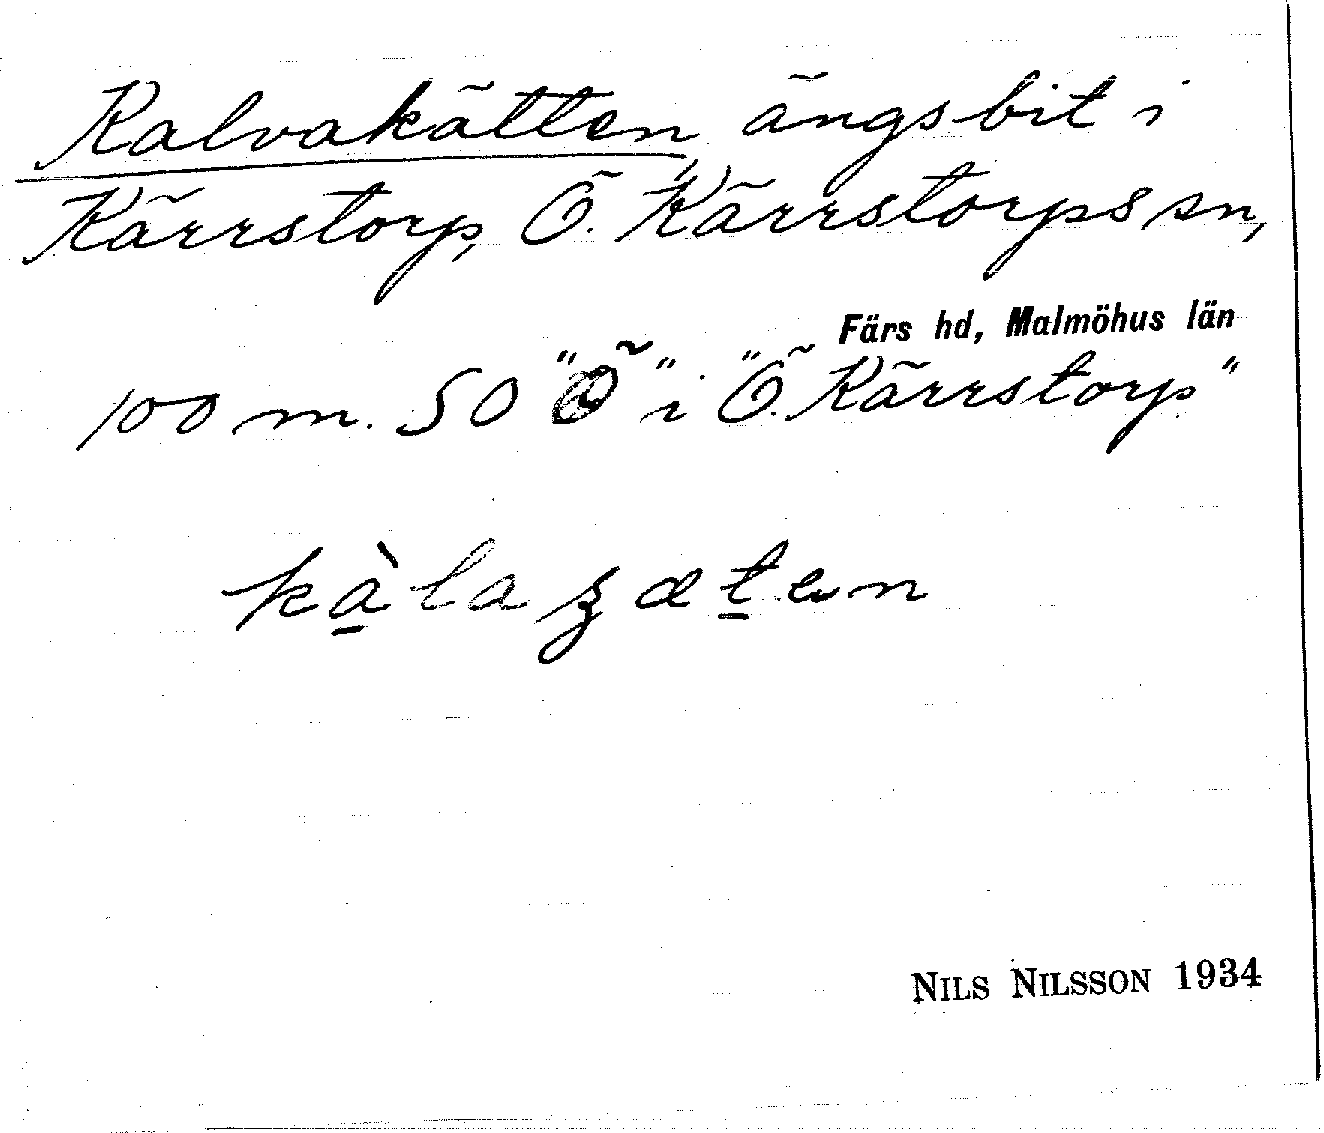 Kalvakätten, ängsbit i
Kärrstorp, Ö. Kärrstorps sn,
Färs hd, Malmöhus län
100 m. SO "Ö" i "Ö. Kärrstorp"
NILS NILSSON 1934